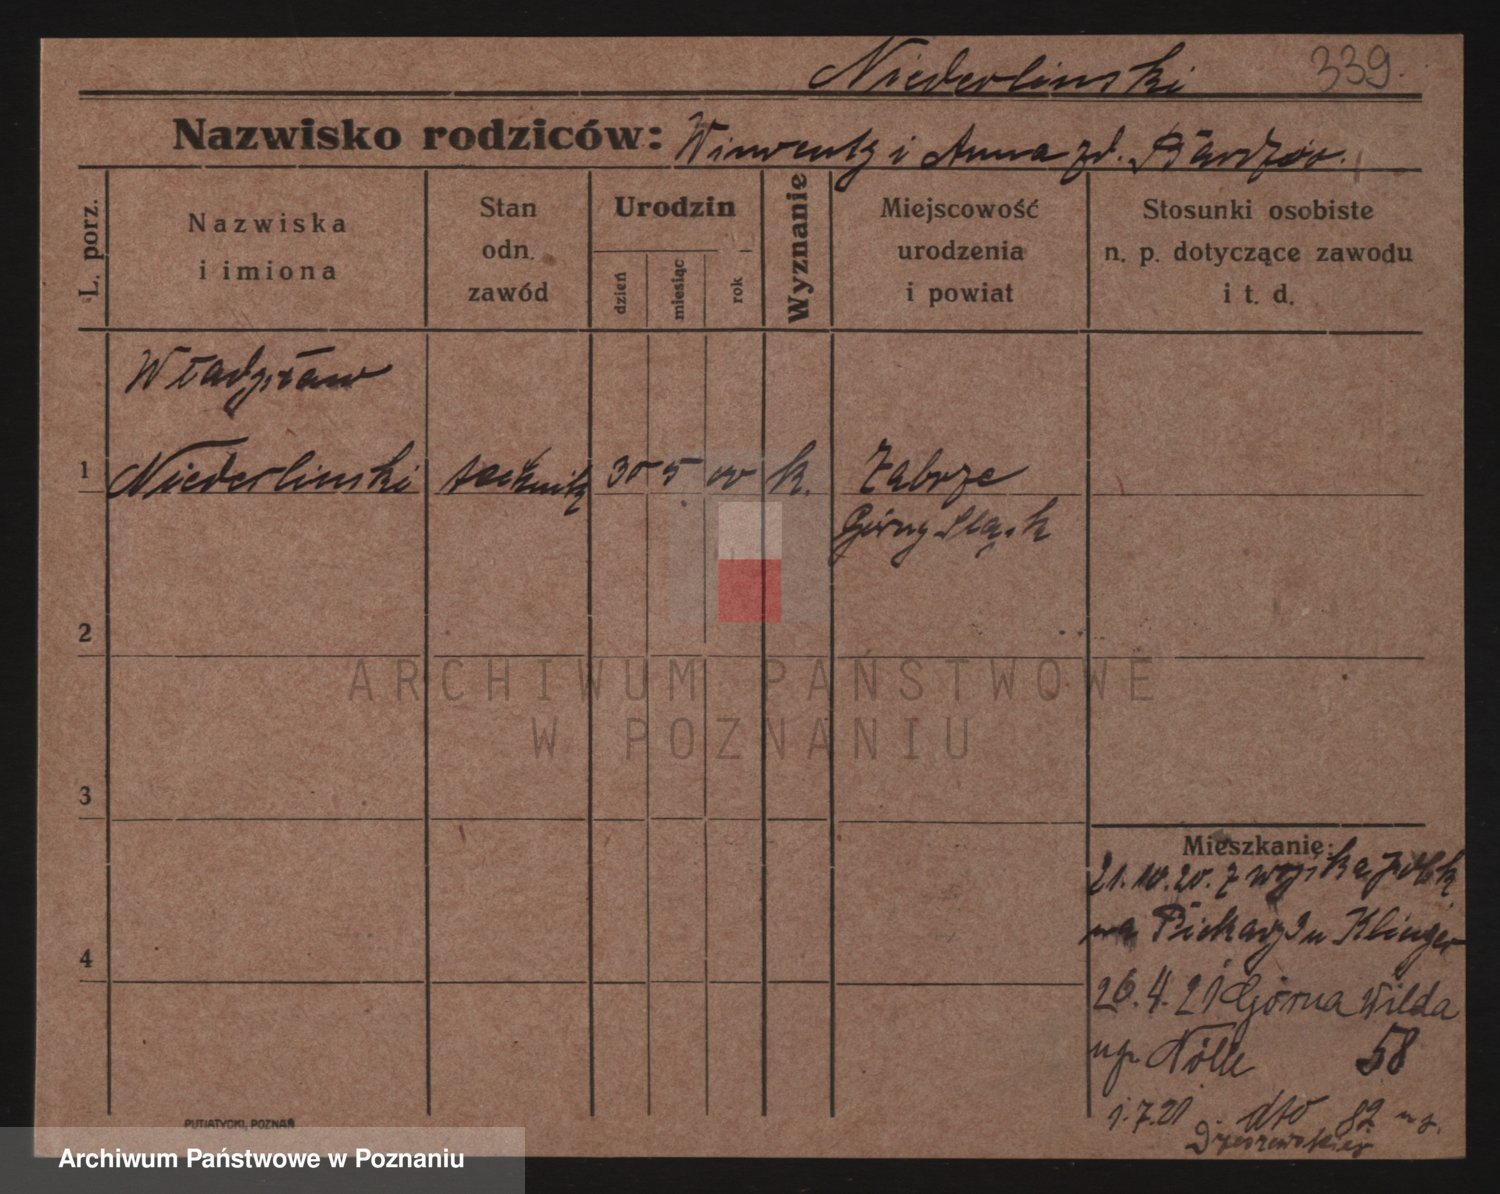 Niederlinski 339.
Nazwisko rodziców: Wincenty i Anna zd.
L. porz.
Nazwiska
i imiona
Stan
odn.
zawód
Urodzin
dzień
miesiąc
rok
Wyznanie
Miejscowość
urodzenia
i powiat
Stosunki osobiste
n. p. dotyczące zawodu
i t. d.
Władysław
1 Niederlinski technik 30 5 00 k. Zabrze
Górny Sląsk
2
3
4
Mieszkanie:
21.10.20. z wojska
na Piekary u Klinger
26.4.21 Górna Wilda
Nölle 58
1.7.21 dto 82
Drzeszewskiej
PUTIATYCKI, POZNAŃ
ARCHIWUM PAŃSTWOWE
W POZNANIU
Archiwum Państwowe w Poznaniu